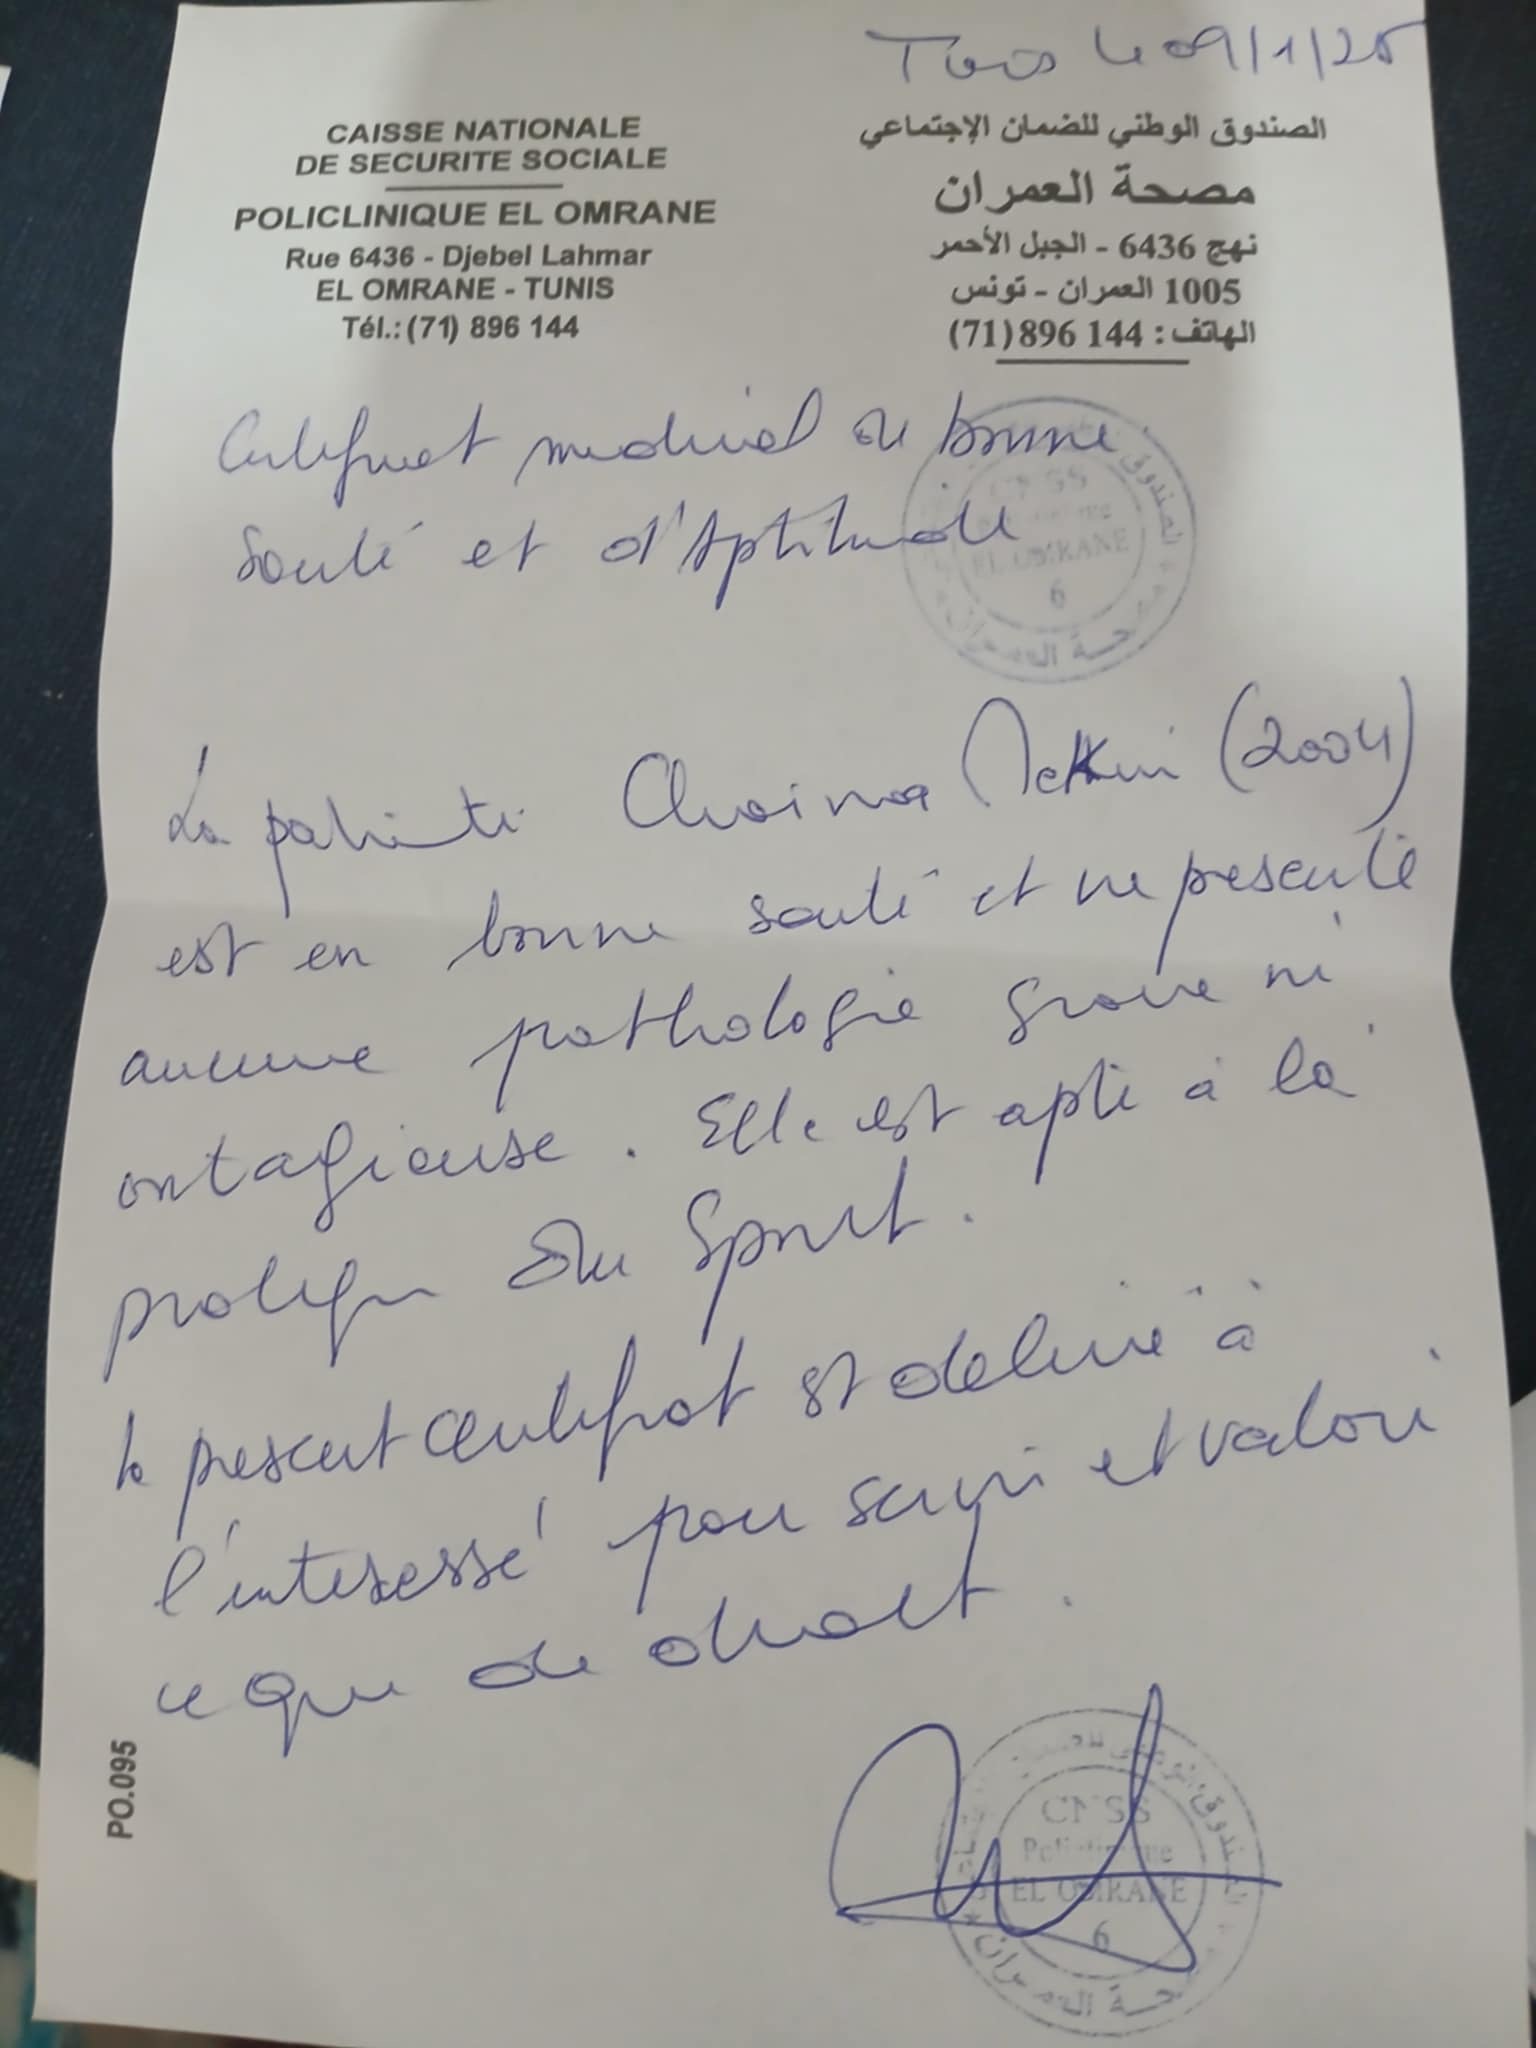 Tunis le 09/1/25
CAISSE NATIONALE
DE SECURITE SOCIALE
POLICLINIQUE EL OMRANE
Rue 6436 - Djebel Lahmar
EL OMRANE - TUNIS
Tél.: (71) 896 144
الصندوق الوطني للضمان الإجتماعي
مصحة العمران
نهج 6436 - الجبل الأحمر
1005 العمران - تونس
الهاتف : 144 896 (71)
Certificat medical de bonne
santé et d'Aptitude
CNSS
EL OMRANE
6
La patiente Chaima (2004)
est en bonne santé et ne presente
aucune pathologie grave ni
contagieuse. Elle est apte à la
pratique du Sport.
le present certificat est delivré à
l'interessé pour servir et valoir
ce que de droit.
PO.095
CNSS
Policlinique
EL OMRANE
6